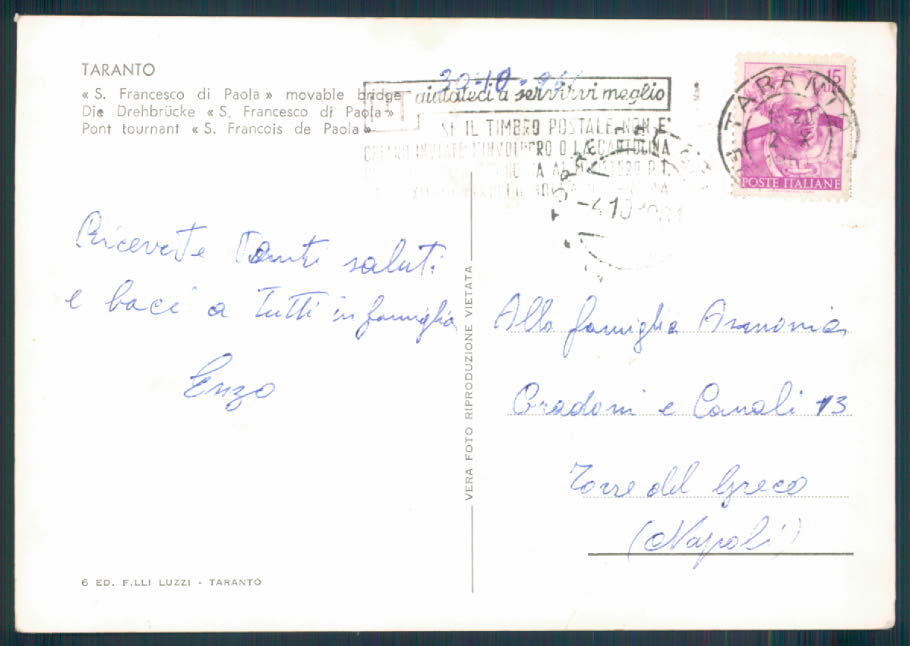 TARANTO
« S. Francesco di Paola » movable bridge
Die Drehbrücke « S. Francesco di Paola »
Pont tournant « S. Francois de Paola »
30-10-
aiutateci a servirvi meglio
SE IL TIMBRO POSTALE NON E'
O LA CARTOLINA
TARANTO
15
POSTE ITALIANE
-4.10
Ricevete Tanti saluti
e baci a Tutti in famiglia
Enzo
VERA FOTO RIPRODUZIONE VIETATA
Alla famiglia
Gradoni e Canali 13
Torre del Greco
(Napoli)
6 ED. F.LLI LUZZI - TARANTO